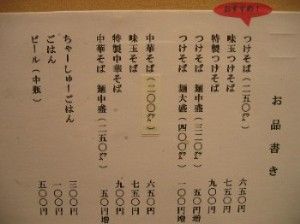 お品書き
おすすめ!
つけそば(二五〇㌘) 六五〇円
味玉つけそば 七五〇円
特製つけそば 九〇〇円
つけそば 麺中盛(三二〇㌘) 五〇円増
つけそば 麺大盛(四〇〇㌘) 一〇〇円増
中華そば(二〇〇㌘) 六五〇円
味玉そば 七五〇円
特製中華そば 九〇〇円
中華そば 麺中盛(二五〇㌘) 五〇円増
ちゃーしゅーごはん 三〇〇円
ごはん 一〇〇円
ビール(中瓶) 五〇〇円